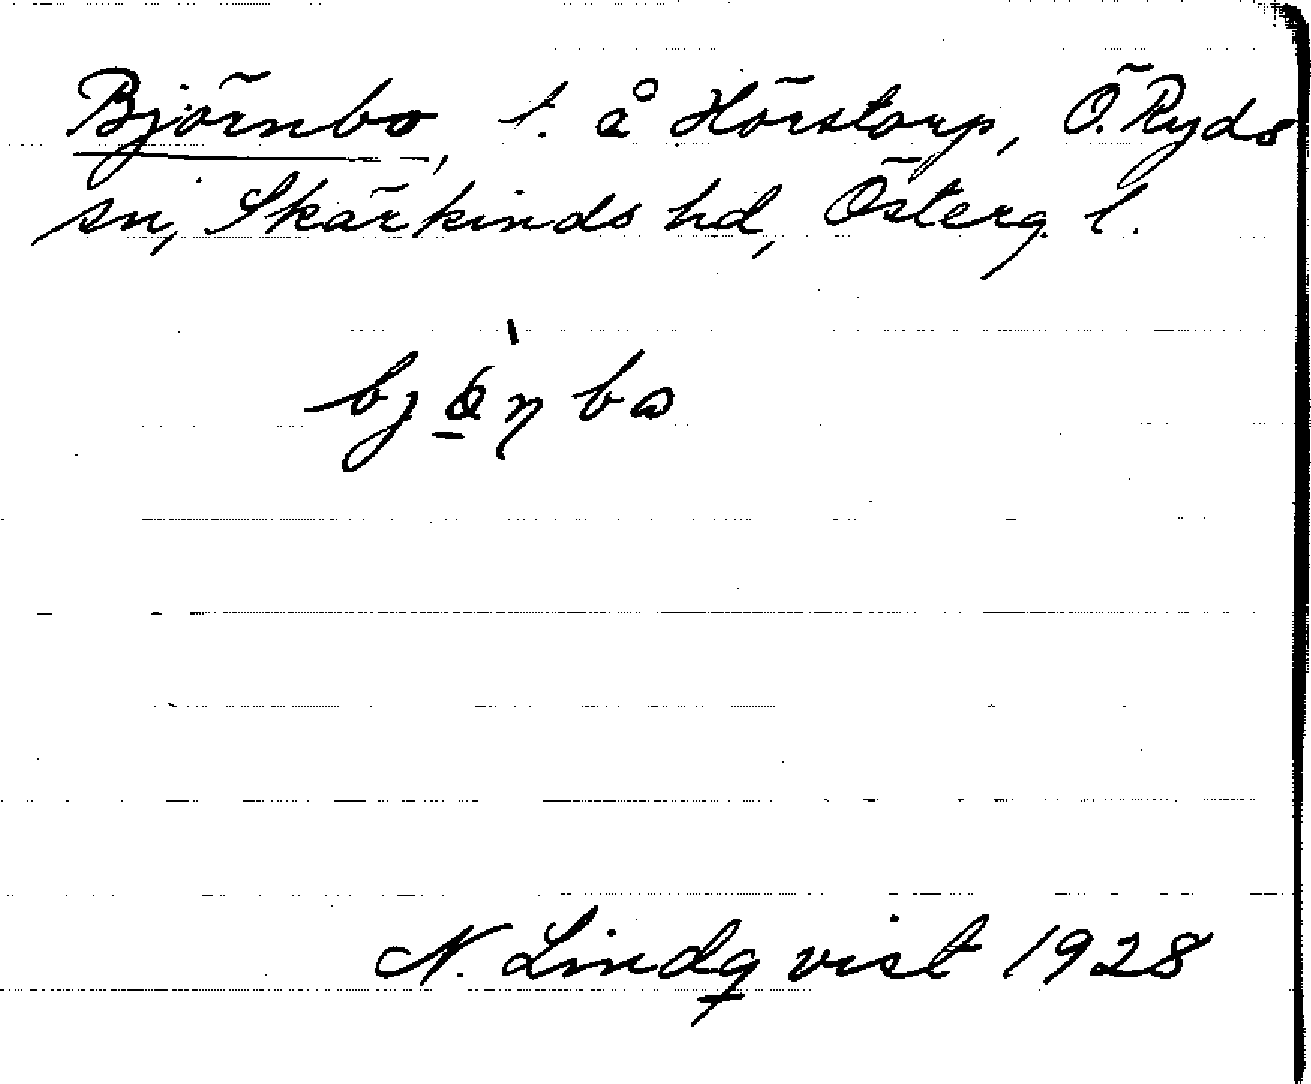 Björnbo, t. å Hörstorp, Ö. Ryds
sn, Skärkinds hd, Österg. l.
N. Lindqvist 1928